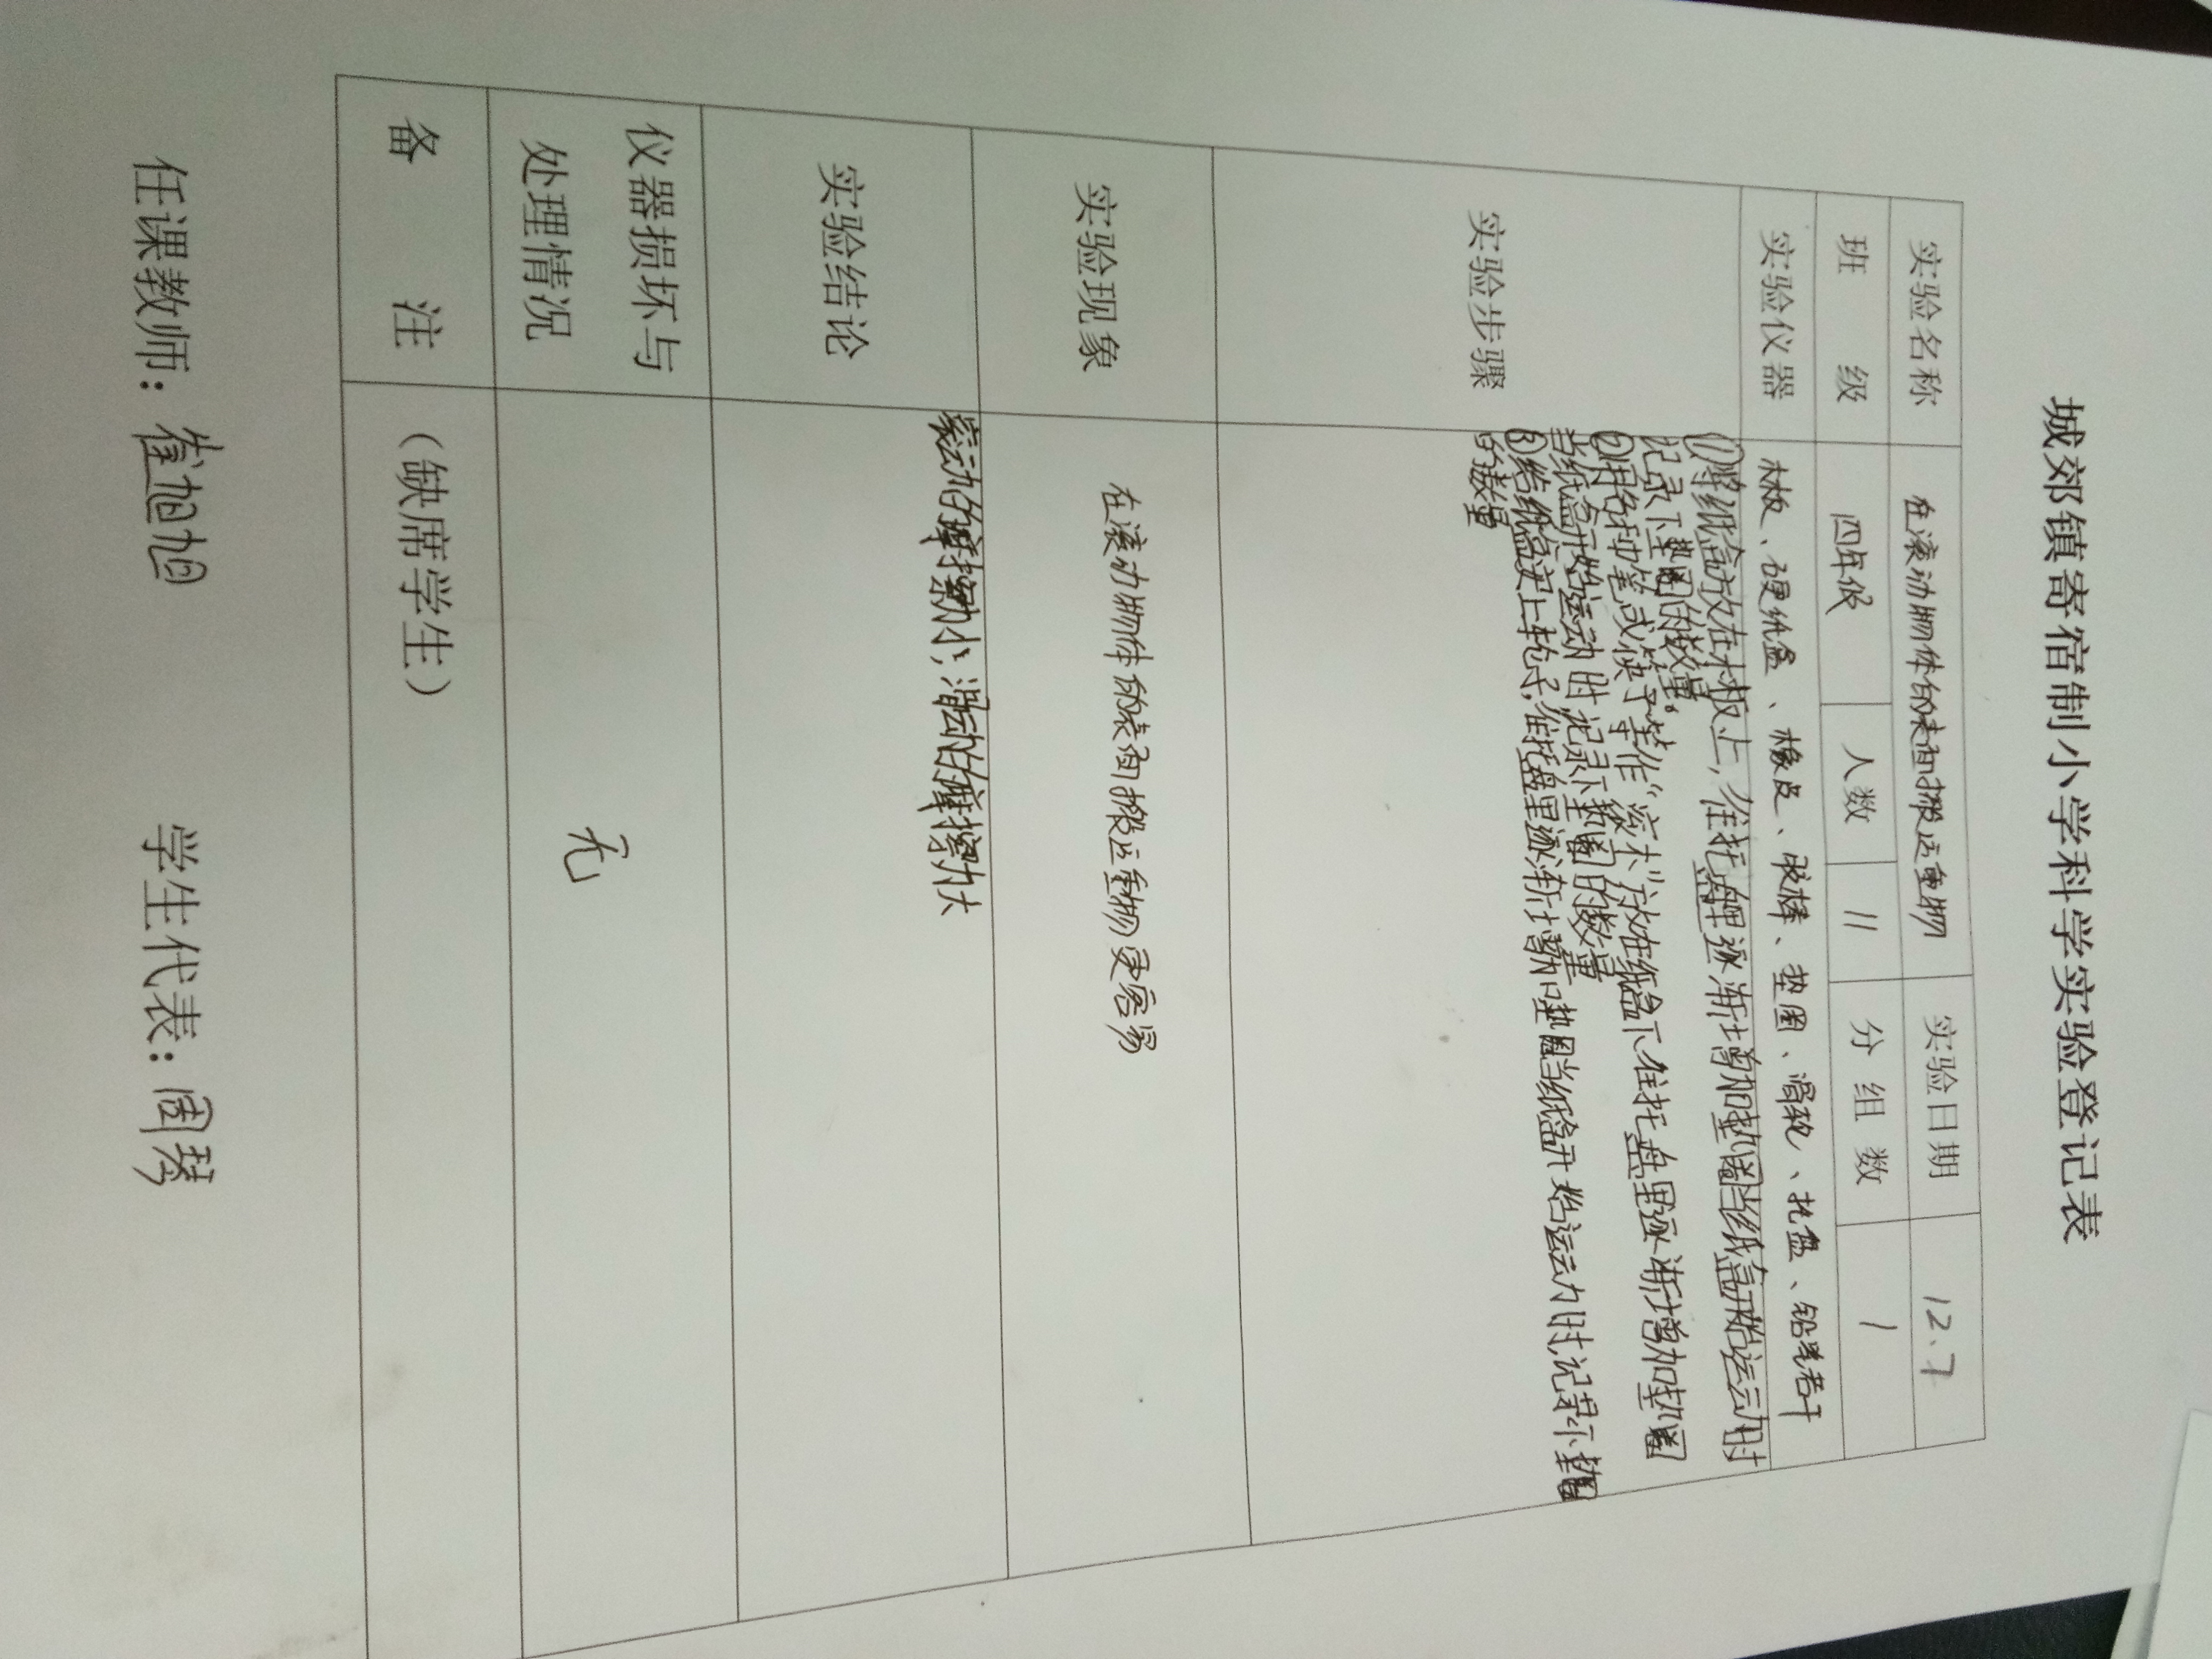 城郊镇寄宿制小学科学实验登记表
实验名称 在滚动物体的表面搬运重物 实验日期 12.7
班级 四年级 人数 11 分组数 1
实验仪器 木板、硬纸盒、橡皮、胶棒、垫圈、滑轮、托盘、铅笔若干
实验步骤
①将纸盒放在木板上,往托盘里逐渐增加垫圈当纸盒开始运动时
记录下垫圈的数量。
②用各种笔或筷子等作“滚木”放在纸盒下往托盘里逐渐增加垫圈
当纸盒开始运动时记录下垫圈的数量
③给纸盒安上轮子,往托盘里逐渐增加垫圈当纸盒开始运动时,记录下垫圈
的数量
实验现象 在滚动物体的表面搬运重物更容易
实验结论 滚动的摩擦力小,滑动的摩擦力大
仪器损坏与
处理情况 无
备注 (缺席学生)
任课教师:崔旭旭 学生代表:周琴